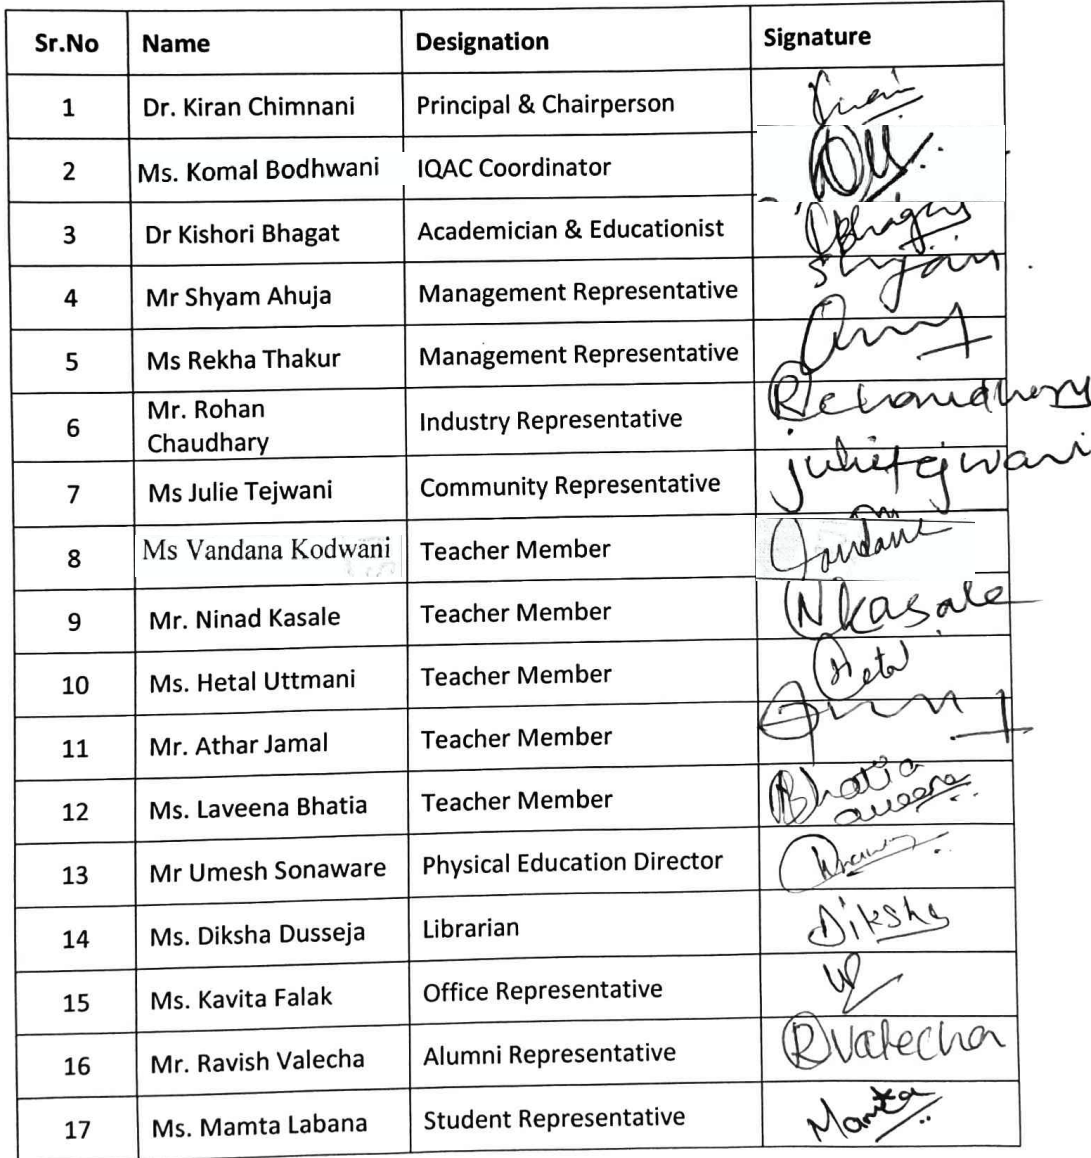 Sr.No Name Designation Signature
1 Dr. Kiran Chimnani Principal & Chairperson
2 Ms. Komal Bodhwani IQAC Coordinator
3 Dr Kishori Bhagat Academician & Educationist
4 Mr Shyam Ahuja Management Representative Shyam
5 Ms Rekha Thakur Management Representative
6 Mr. Rohan Industry Representative RChaudhary
Chaudhary
7 Ms Julie Tejwani Community Representative julietejwani
8 Ms Vandana Kodwani Teacher Member
9 Mr. Ninad Kasale Teacher Member NKasale
10 Ms. Hetal Uttmani Teacher Member Hetal
11 Mr. Athar Jamal Teacher Member
12 Ms. Laveena Bhatia Teacher Member Bhatia
13 Mr Umesh Sonaware Physical Education Director
14 Ms. Diksha Dusseja Librarian Diksha
15 Ms. Kavita Falak Office Representative
16 Mr. Ravish Valecha Alumni Representative RValecha
17 Ms. Mamta Labana Student Representative Mamta